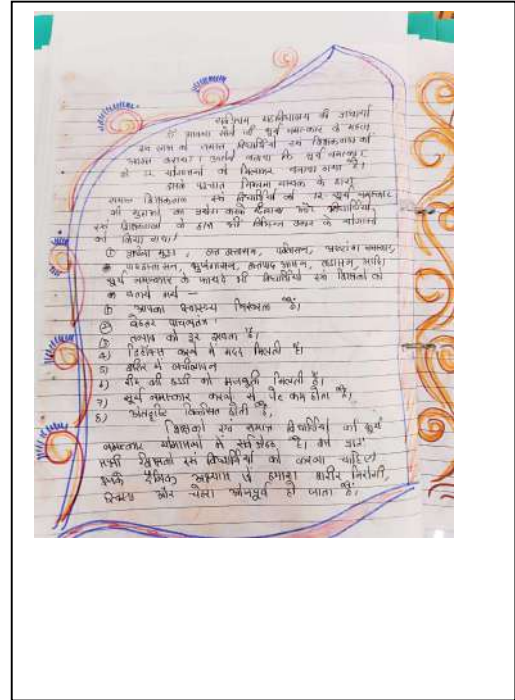 सर्वप्रथम महाविद्यालय की प्राचार्या
ने सूर्य नमस्कार के महत्व
एवं लाभ से समस्त विद्यार्थियों एवं शिक्षकगण को
अवगत कराया। उन्होंने बताया कि सूर्य नमस्कार
को 12 योगासनों को मिलाकर बनाया गया है।
इसके पश्चात के द्वारा
समस्त शिक्षकगण एवं विद्यार्थियों को 12 सूर्य नमस्कार
की मुद्राओं का करके दिखाया और विद्यार्थियों,
एवं शिक्षकगणों के द्वारा भी विभिन्न प्रकार के योगासनों
को किया गया।
① मुद्रा, हस्त उत्तानासन,
पर्वतासन, भुजंगासन, हस्तपाद आसन, ताडासन, आदि।
सूर्य नमस्कार के फायदे भी विद्यार्थियों एवं शिक्षकों को
बताये गये —
① आपका स्वास्थ्य निखरता है।
② बेहतर पाचनतंत्र।
③ तनाव को दूर रखता है।
4) डिटॉक्स करने में मदद मिलती है।
5) शरीर में लचीलापन
6) रीढ़ की हड्डी को मजबूती मिलती है।
7) सूर्य नमस्कार करने से पेट कम होता है,
8) अंतर्दृष्टि विकसित होती है,
शिक्षकों एवं समस्त विद्यार्थियों को सूर्य
नमस्कार योगासनों में सर्वश्रेष्ठ है।
सभी शिक्षकों एवं विद्यार्थियों को करना चाहिए
इसके दैनिक अभ्यास से हमारा शरीर निरोगी,
स्वस्थ और चेहरा ओजपूर्ण हो जाता है।